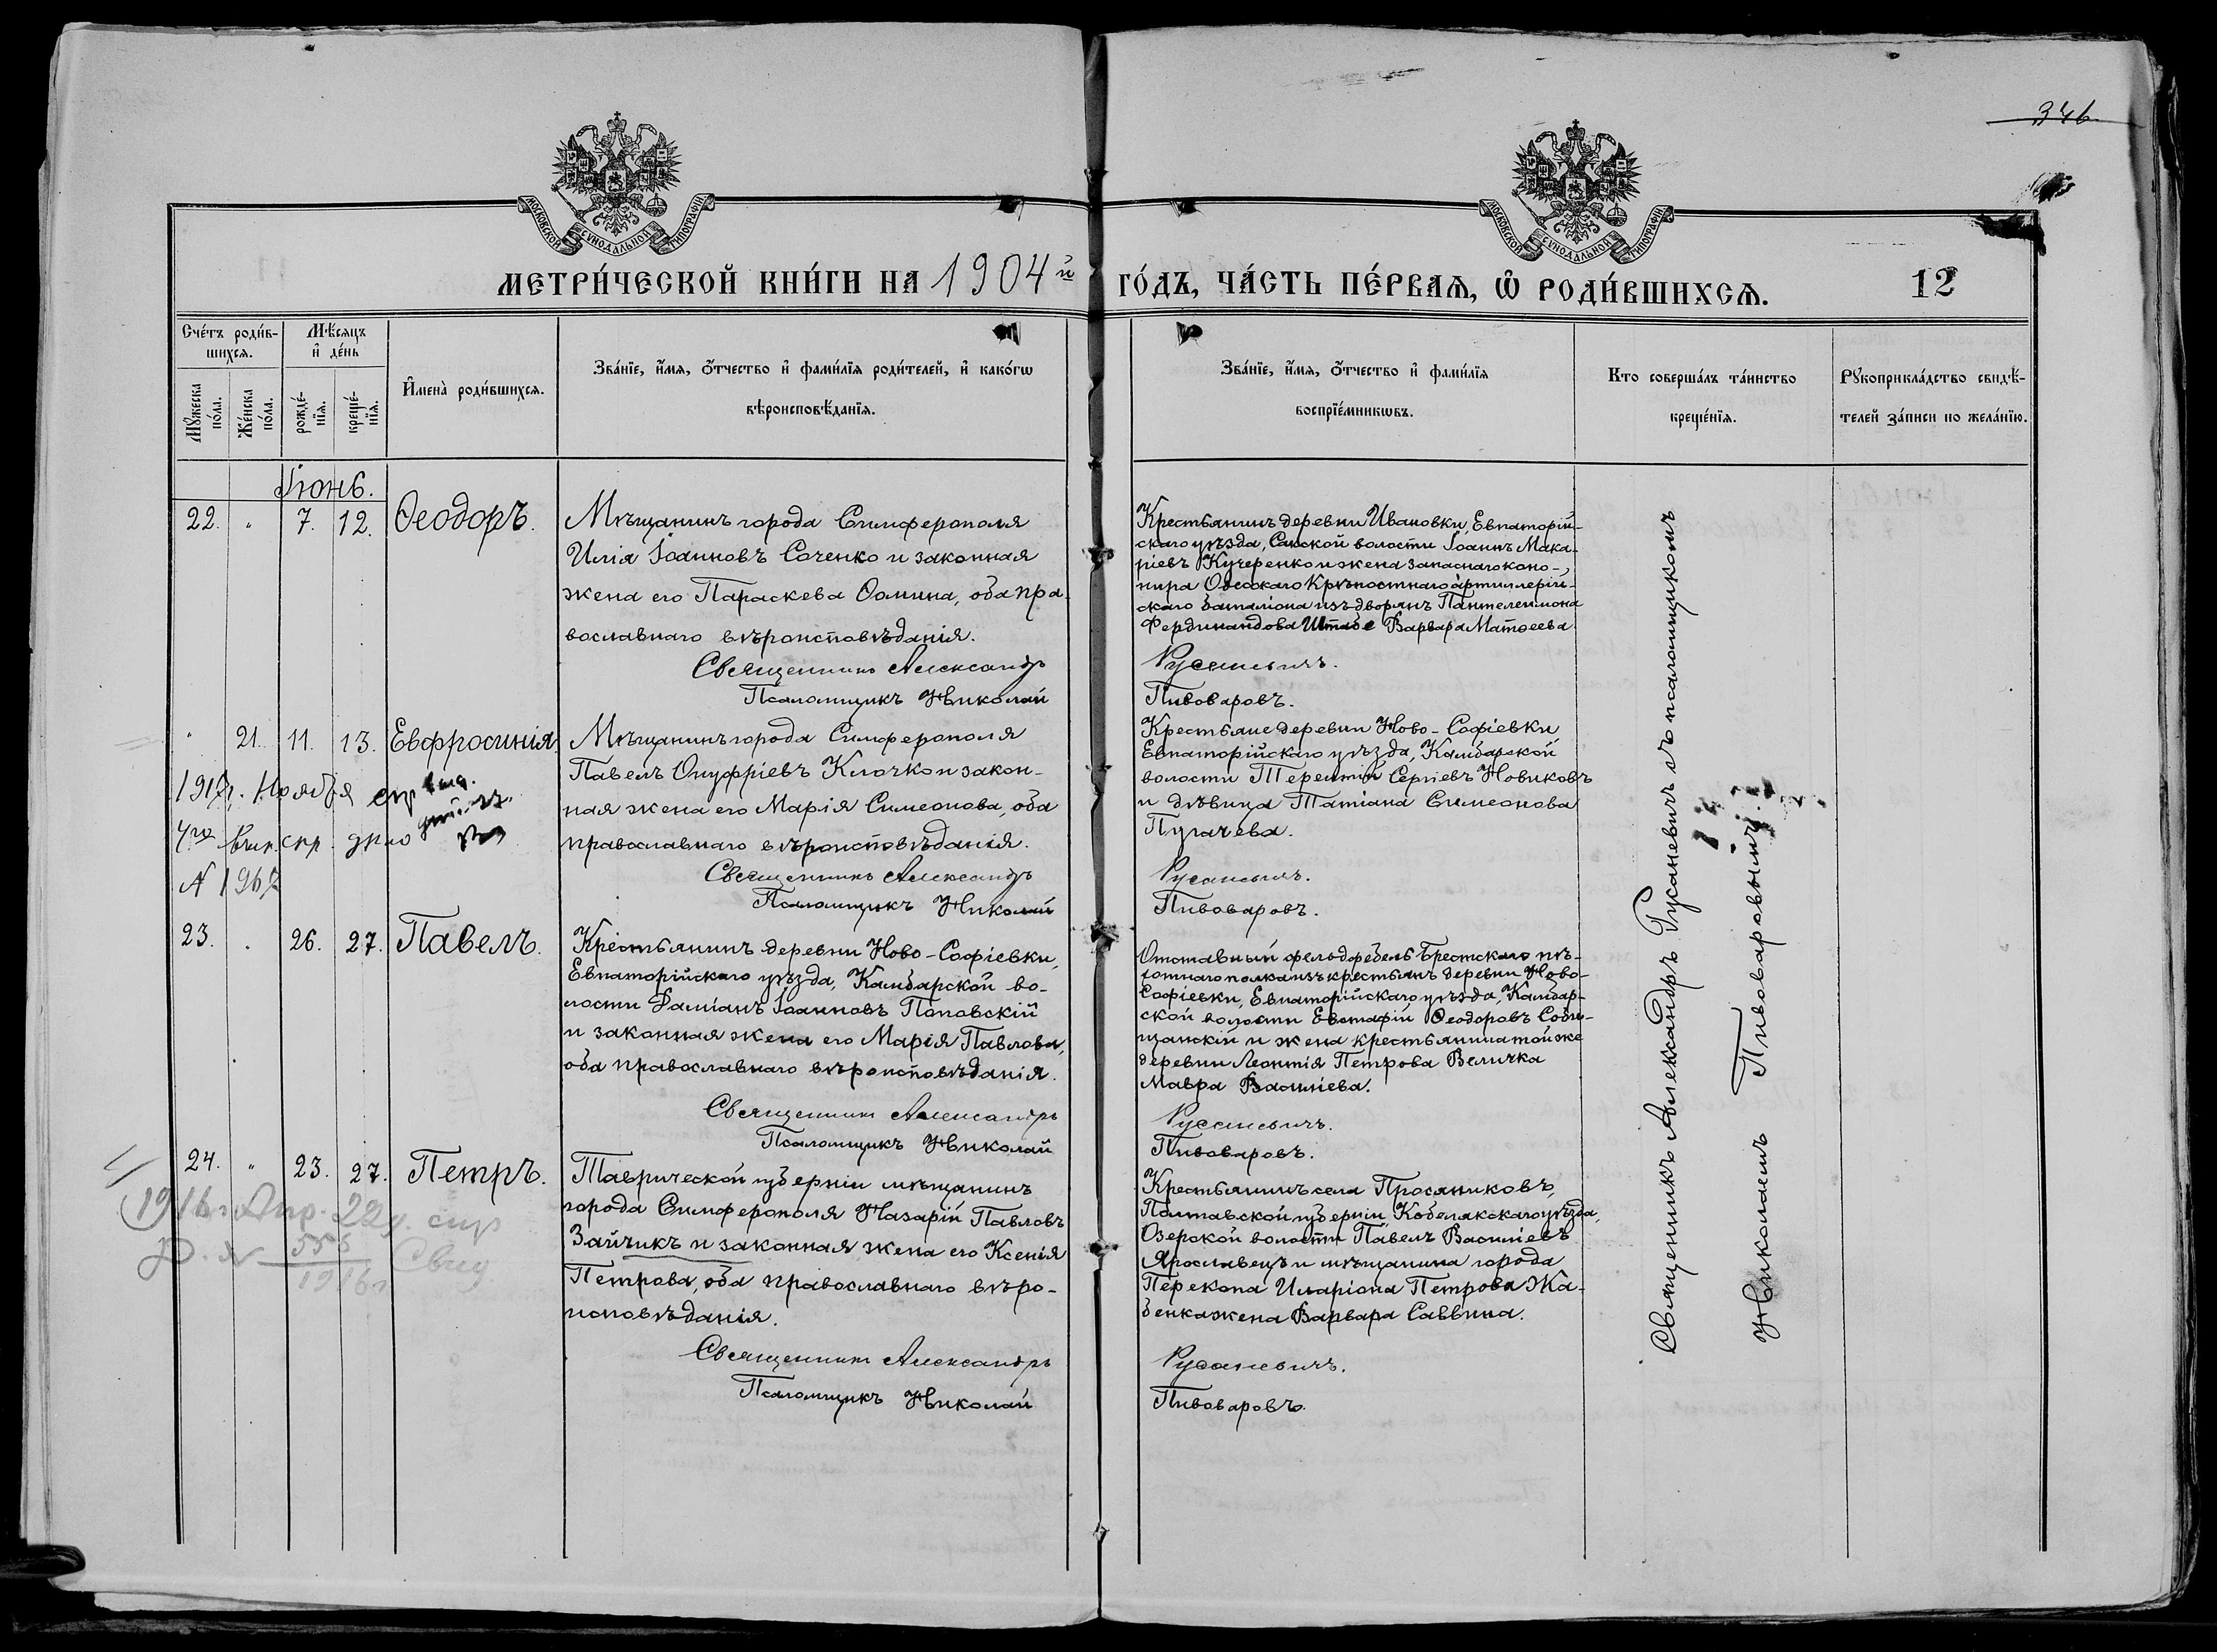 346
МОСКОВСКОЙ СѴНОДАЛЬНОЙ ТИПОГРАФІИ
МОСКОВСКОЙ СѴНОДАЛЬНОЙ ТИПОГРАФІИ
МЕТРИ́ЧЕСКОЙ КНИ́ГИ НА 1904й ГО́ДЪ, ЧА́СТЬ ПЕ́РВАѦ, Ѡ РОДИ́ВШИХСѦ. 12
Сче́тъ роди́в-
шихсѧ.
Мꙋ́жеска по́ла.
Же́нска по́ла.
Мѣ́сѧцъ и҆ де́нь
рожде́-
нїѧ.
креще́-
нїѧ.
И҆мена̀ роди́вшихсѧ.
Зва́нїе, и҆́мѧ, ѻ҆́тчество и҆ фами́лїѧ роди́телей, и҆ како́гѡ
вѣроисповѣ́данїѧ.
Зва́нїе, и҆́мѧ, ѻ҆́тчество и҆ фами́лїѧ
воспрїе́мникѡвъ.
Кто соверша́лъ та́инство
креще́нїѧ.
Рꙋкоприкла́дство свидѣ́-
телей за́писи по жела́нїю.
Іюнь.
22. " 7. 12. Ѳеодоръ.
Мѣщанинъ города Симферополя
Илія Іоанновъ Соченко и законная
жена его Параскева Ѳомина, оба пра-
вославнаго вѣроисповѣданія.
Священникъ Александръ
Псаломщикъ Николай
Крестьянинъ деревни Ивановки, Евпаторій-
скаго уѣзда, Сакской волости Іоаннъ Мака-
ріевъ Кучеренко и жена запаснаго коно-
нира Одесскаго Крѣпостнаго артиллерій-
скаго баталіона изъ дворянъ Пантелеимона
Фердинандова Штабе Варвара Матѳеева.
Русаневичъ.
Пивоваровъ.
" 21. 11. 13. Евфросинія.
Мѣщанинъ города Симферополя
Павелъ Онуфріевъ Клочко и закон-
ная жена его Марія Симеонова, оба
православнаго вѣроисповѣданія.
Священникъ Александръ
Псаломщикъ Николай
Крестьяне деревни Ново-Софіевки
Евпаторійскаго уѣзда, Камбарской
волости Терентій Сергіевъ Новиковъ
и дѣвица Татіана Симеонова
Пугачева.
Русаневичъ.
Пивоваровъ.
1917г. Ноября
4го
N 1967
23. " 26. 27. Павелъ.
Крестьянинъ деревни Ново-Софіевки,
Евпаторійскаго уѣзда, Камбарской во-
лости Даміанъ Іоанновъ Поповскій
и законная жена его Марія Павлова,
оба православнаго вѣроисповѣданія.
Священникъ Александръ
Псаломщикъ Николай
Отставный фельдфебель Брестскаго пѣ-
хотнаго полка изъ крестьянъ деревни Ново-
Софіевки, Евпаторійскаго уѣзда, Камбар-
ской волости Евстафій Ѳеодоровъ
и жена крестьянина той же
деревни Леонтія Петрова Величка
Мавра Василіева.
Русаневичъ.
Пивоваровъ.
24. " 23. 27. Петръ.
Таврической губерніи мѣщанинъ
города Симферополя Назарій Павловъ
Зайчикъ и законная жена его Ксенія
Петрова, оба православнаго вѣро-
исповѣданія.
Священникъ Александръ
Псаломщикъ Николай
Крестьянинъ села Просяниковъ,
Полтавской губерніи, Кобелякскаго уѣзда,
Озерской волости Павелъ Василіевъ
Ярославецъ и мѣщанина города
Перекопа Иларіона Петрова Жа-
бенка жена Варвара Саввина.
Русаневичъ.
Пивоваровъ.
1916г. Апр. 22
1916г
Священникъ Александръ Русаневичъ съ псаломщикомъ
Николаемъ Пивоваровымъ.